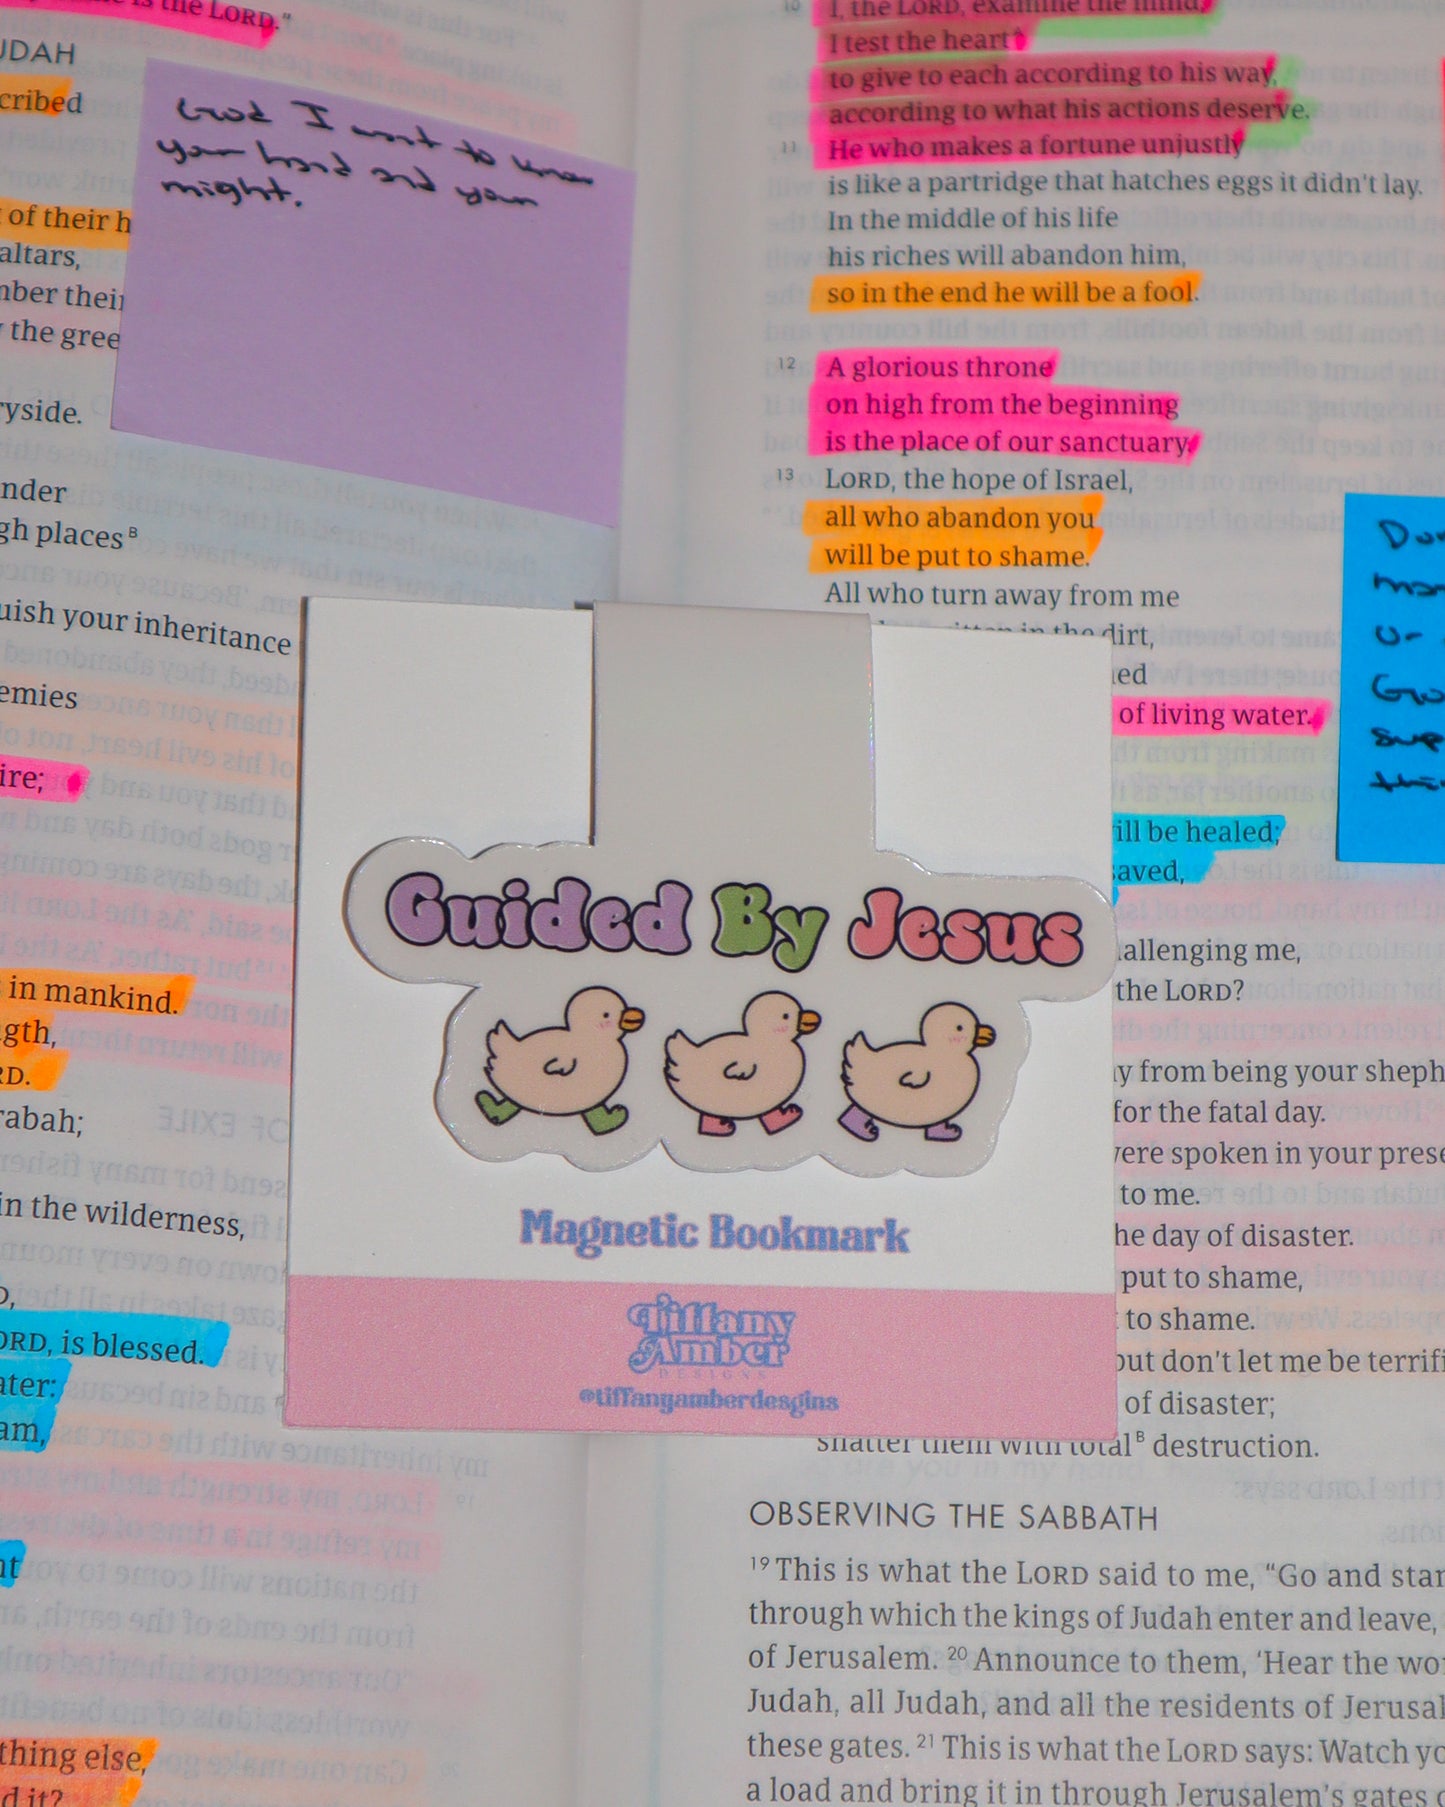 is the LORD."
UDAH
cribed
of their h
altars,
mber their
the gree
ryside.
nder
gh places B
uish your inheritance
emies
ire;
in mankind.
ngth,
RD.
rabah;
in the wilderness,
D,
ORD, is blessed.
ater:
am,
nt
thing else,
d it?
God I want to know
your hand and your
might.
10 I, the LORD, examine the mind,
I test the heart A
to give to each according to his way,
according to what his actions deserve.
11 He who makes a fortune unjustly
is like a partridge that hatches eggs it didn't lay.
In the middle of his life
his riches will abandon him,
so in the end he will be a fool.
12 A glorious throne
on high from the beginning
is the place of our sanctuary.
13 LORD, the hope of Israel,
all who abandon you
will be put to shame.
All who turn away from me
in the dirt,
of living water.
ill be healed;
saved,
hallenging me,
the LORD?
y from being your sheph
for the fatal day.
were spoken in your prese
to me.
he day of disaster.
put to shame,
to shame.
but don't let me be terrifi
of disaster;
shatter them with total B destruction.
OBSERVING THE SABBATH
19 This is what the LORD said to me, "Go and stan
through which the kings of Judah enter and leave,
of Jerusalem. 20 Announce to them, 'Hear the wor
Judah, all Judah, and all the residents of Jerusal
these gates. 21 This is what the LORD says: Watch yo
a load and bring it in through Jerusalem's gates
Guided By Jesus
Magnetic Bookmark
Tiffany
Amber
DESIGNS
@tiffanyamberdesgins